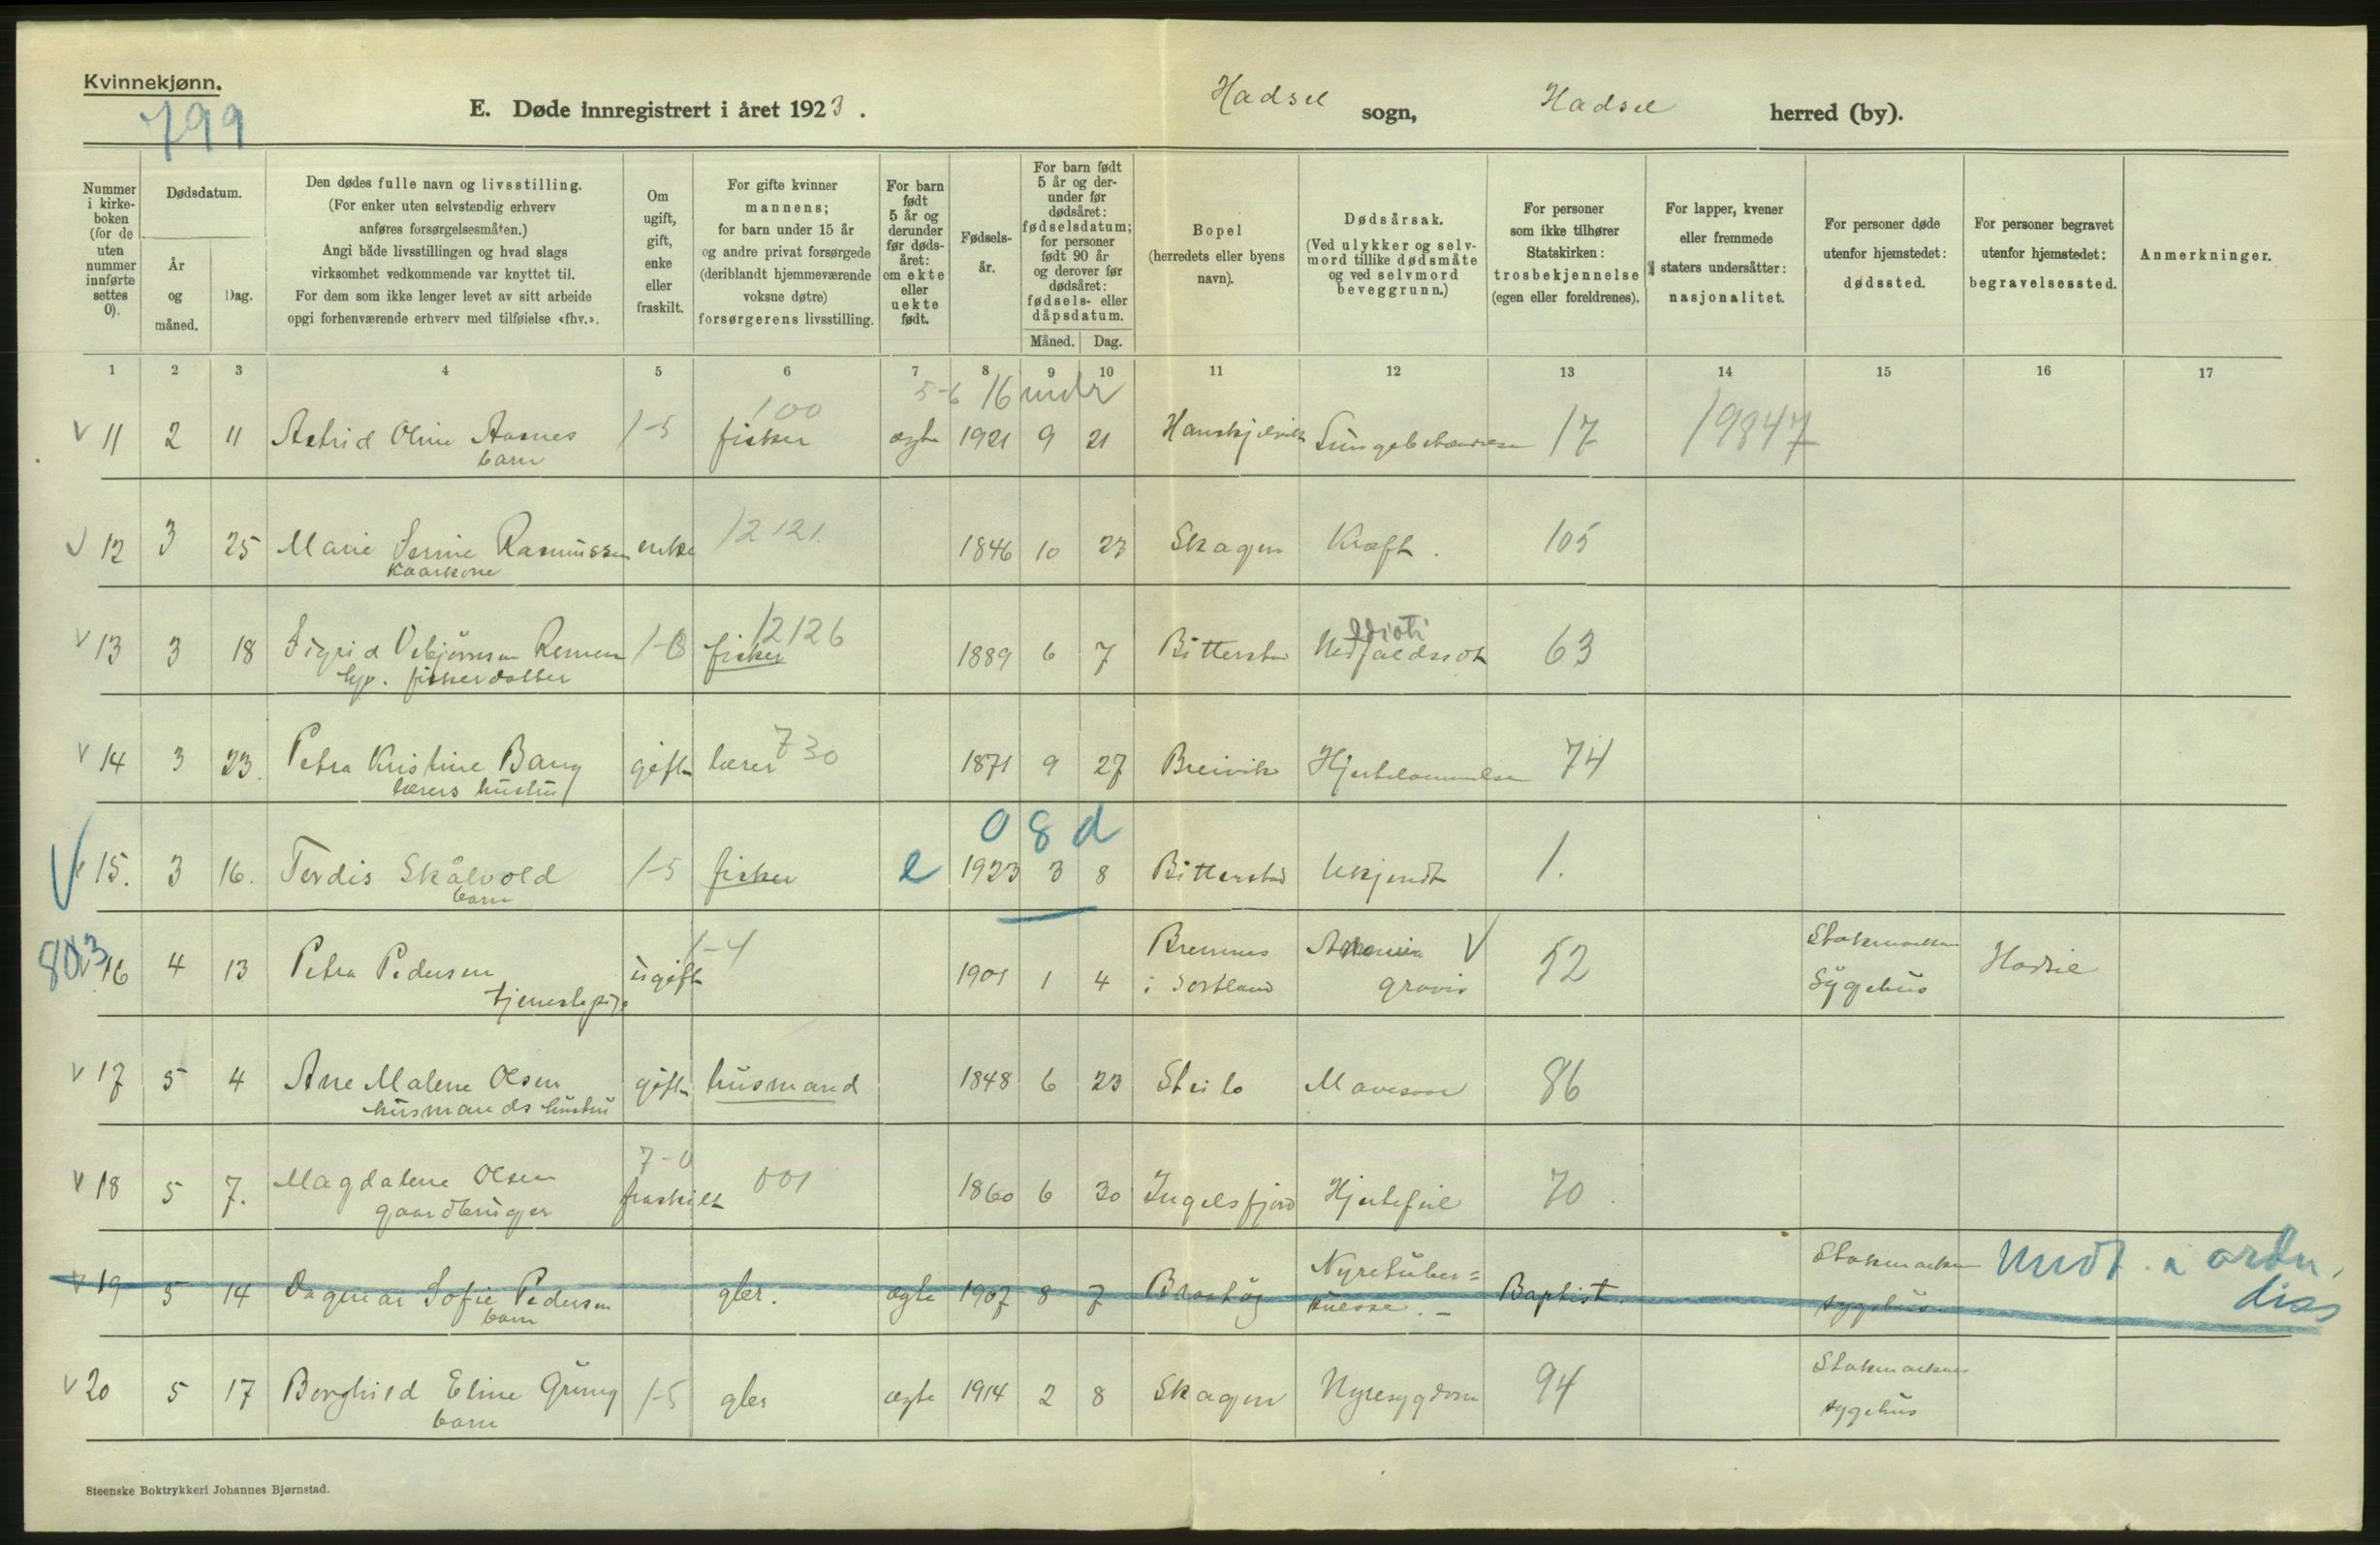 Kvinnekjønn.
799
E. Døde innregistrert i året 1923.
Hadsel sogn, Hadsel herred (by).
Nummer i kirke-boken (for de uten nummer innførte settes 0).
Dødsdatum.
År og måned.
Dag.
Den dødes fulle navn og livsstilling.
(For enker uten selvstendig erhverv
anføres forsørgelsesmåten.)
Angi både livsstillingen og hvad slags
virksomhet vedkommende var knyttet til.
For dem som ikke lenger levet av sitt arbeide
opgi forhenværende erhverv med tilføielse «fhv.».
Om ugift, gift, enke eller fraskilt.
For gifte kvinner
mannens;
for barn under 15 år
og andre privat forsørgede
(deriblandt hjemmeværende
voksne døtre)
forsørgerens livsstilling.
For barn født 5 år og derunder før døds-året: om ekte eller uekte født.
Fødsels-år.
For barn født 5 år og der-under før dødsåret: fødselsdatum; for personer født 90 år og derover før dødsåret: fødsels- eller dåpsdatum.
Måned. Dag.
Bopel
(herredets eller byens
navn).
Dødsårsak.
(Ved ulykker og selv-
mord tillike dødsmåte
og ved selvmord
beveggrunn.)
For personer
som ikke tilhører
Statskirken:
trosbekjennelse
(egen eller foreldrenes).
For lapper, kvener
eller fremmede
staters undersåtter:
nasjonalitet.
For personer døde
utenfor hjemstedet:
dødssted.
For personer begravet
utenfor hjemstedet:
begravelsessted.
Anmerkninger.
1 2 3 4 5 6 7 8 9 10 11 12 13 14 15 16 17
5-6 16 mdr
100
V 11 2 11 Astrid Oline Aasnes 1-5 fisker ægte 1921 9 21 17 19847
barn
V 12 3 25 Marie Serine Rasmussen enke 12121. 1846 10 23 Skagen Kræft. 105
Kaarkone
12126 Idioti
V 13 3 18 Sigrid Remen fisker 1889 6 7 Bitterstad 63
fiskerdatter
V 14 3 23. Petra Kristine Bang gift lærer 730 1871 9 27 Breivik Hjertelammelse 74
lærers hustru
0 8 d
V 15. 3 16. Skålvold 1-5 fisker e 1923 3 8 Bitterstad Ukjendt 1.
barn
803 1-4 Bremnes V
16 4 13 Petra Pedersen ugift 1901 1 4 i Sortland gravis 52 Stokmarknes Sygehus Hadsel
tjenestepige
V 17 5 4 Ane Malene Olsen gift husmand 1848 6 23 Steilo Mavesaar 86
husmands hustru
7-0
V 18 5 7. Magdalene Olsen fraskilt 001 1860 6 30 Ingelsfjord Hjertefeil 70.
gaardbruger
Nyretuber= Stokmarknes Undt. a ordn,
V 19 5 14 Dagmar Sofie Pedersen gbr. ægte 1907 8 7 kulose. - Baptist. sygehus
barn
Stokmarknes
V 20 5 17 Borghild Eline Grung 1-5 gbr ægte 1914 2 8 Skagen Nyresygdom 94 sygehus
barn
Steenske Boktrykkeri Johannes Bjørnstad.